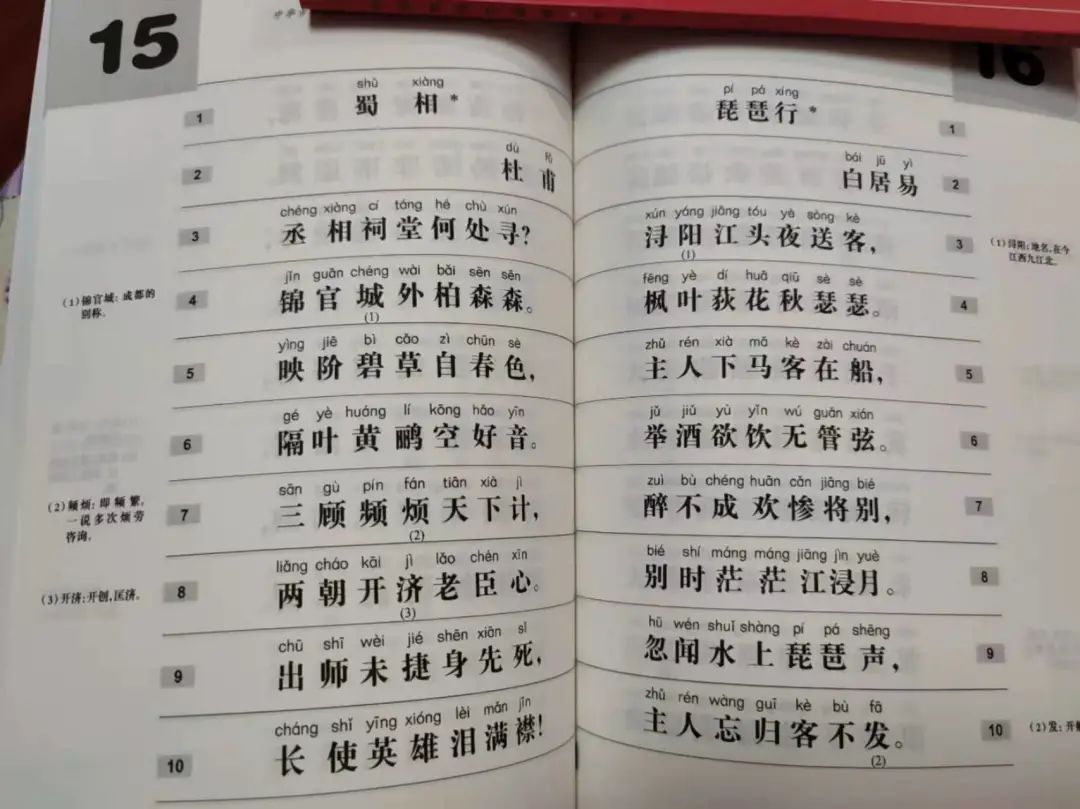 15
shǔ xiàng
1 蜀 相*
dù fǔ
2 杜 甫
chéng xiàng cí táng hé chù xún
3 丞相祠堂何处寻?
jǐn guān chéng wài bǎi sēn sēn
4 锦官城外柏森森。
(1)
(1)锦官城:成都的
别称。
yìng jiē bì cǎo zì chūn sè
5 映阶碧草自春色,
gé yè huáng lí kōng hǎo yīn
6 隔叶黄鹂空好音。
sān gù pín fán tiān xià jì
7 三顾频烦天下计,
(2)
(2)频烦:即频繁,
一说多次烦劳
咨询。
liǎng cháo kāi jì lǎo chén xīn
8 两朝开济老臣心。
(3)
(3)开济:开创,匡济。
chū shī wèi jié shēn xiān sǐ
9 出师未捷身先死,
cháng shǐ yīng xióng lèi mǎn jīn
10 长使英雄泪满襟!
16
pí pá xíng
琵琶行* 1
bái jū yì
白居易 2
xún yáng jiāng tóu yè sòng kè
浔阳江头夜送客, 3
(1)
(1)浔阳:地名,在今
江西九江北。
fēng yè dí huā qiū sè sè
枫叶荻花秋瑟瑟。 4
zhǔ rén xià mǎ kè zài chuán
主人下马客在船, 5
jǔ jiǔ yù yǐn wú guǎn xián
举酒欲饮无管弦。 6
zuì bù chéng huān cǎn jiāng bié
醉不成欢惨将别, 7
bié shí máng máng jiāng jìn yuè
别时茫茫江浸月。 8
hū wén shuǐ shàng pí pá shēng
忽闻水上琵琶声, 9
zhǔ rén wàng guī kè bù fā
主人忘归客不发。 10
(2)
(2)发:开